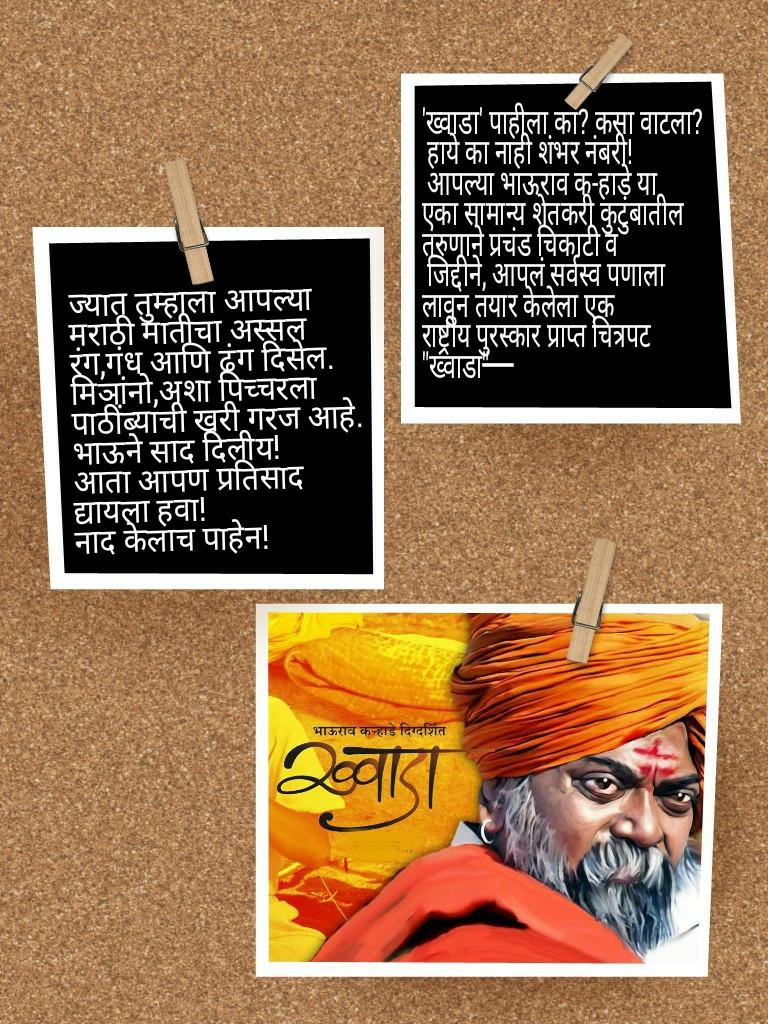 'ख्वाडा' पाहीला का? कसा वाटला?
हाये का नाही शंभर नंबरी!
आपल्या भाऊराव क-हाडे या
एका सामान्य शेतकरी कुटुंबातील
तरुणाने प्रचंड चिकाटी व
जिद्दीने, आपलं सर्वस्व पणाला
लावून तयार केलेला एक
राष्ट्रीय पुरस्कार प्राप्त चित्रपट
"ख्वाडा"—
ज्यात तुम्हाला आपल्या
मराठी मातीचा अस्सल
रंग,गंध आणि ढंग दिसेल.
मित्रांनो,अशा पिच्चरला
पाठींब्याची खरी गरज आहे.
भाऊने साद दिलीय!
आता आपण प्रतिसाद
द्यायला हवा!
नाद केलाच पाहेन!
भाऊराव कऱ्हाडे दिग्दर्शित
ख्वाडा